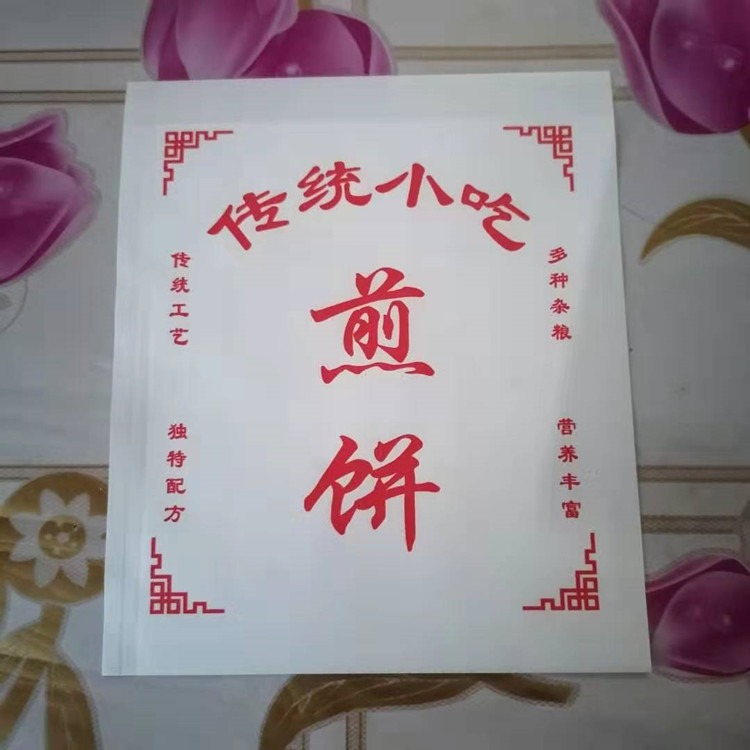 传统小吃
传统工艺
多种杂粮
煎饼
独特配方
营养丰富